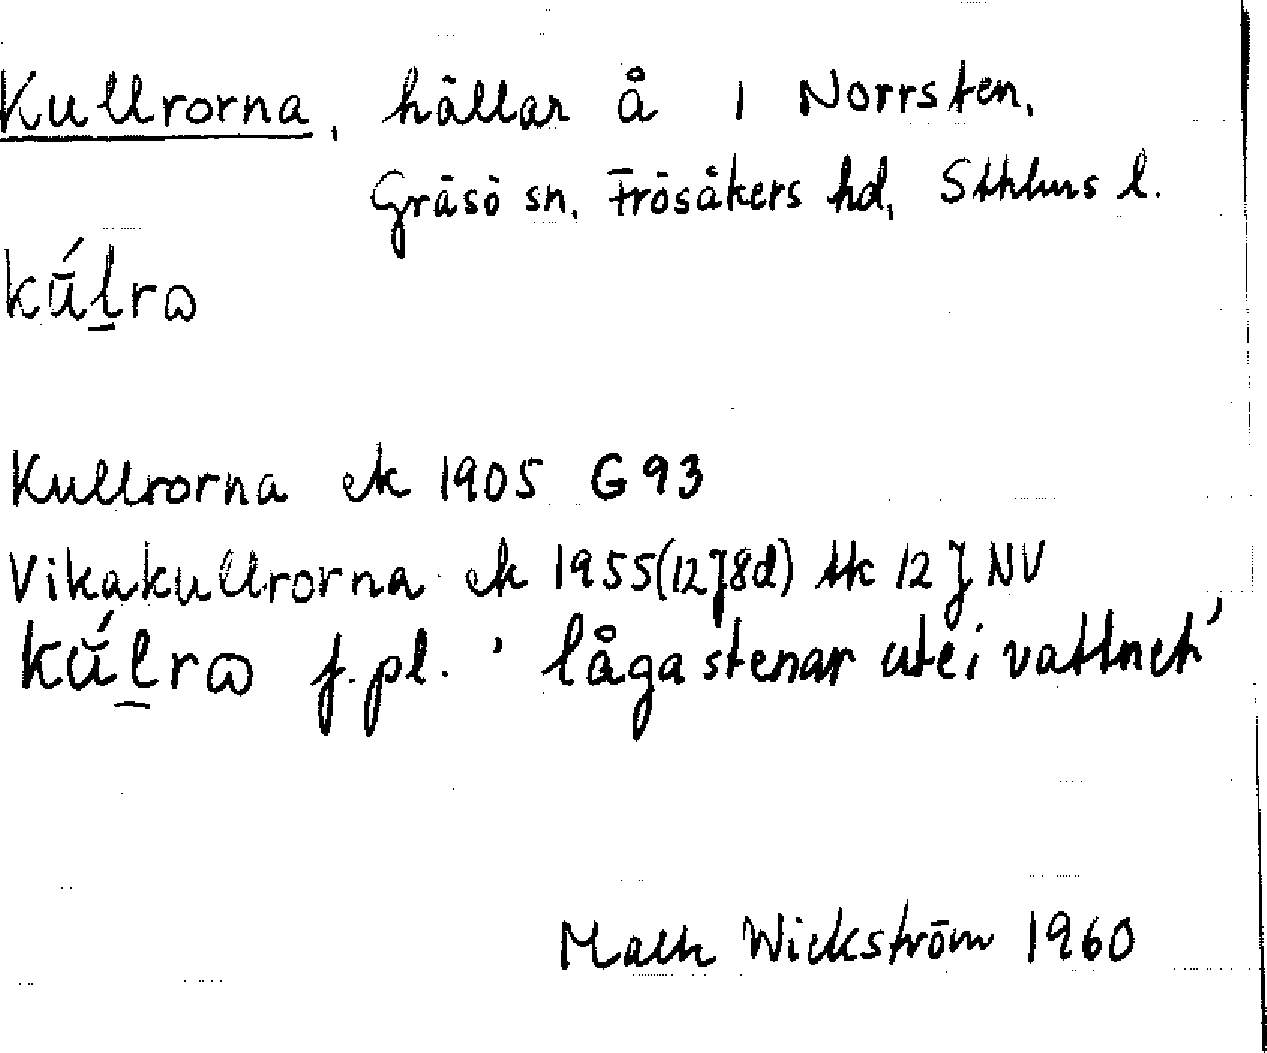 Kullrorna, hällar å 1 Norrsten,
Gräsö sn, Frösåkers hd, Sthlms l.
kú̄l̲rɷ
Kullrorna ek 1905 G 93
Vikakullrorna ek 1955 (12J8d) tk 12 J NV
kú̆l̲rɷ f.pl. 'låga stenar ute i vattnet'
Wickström 1960